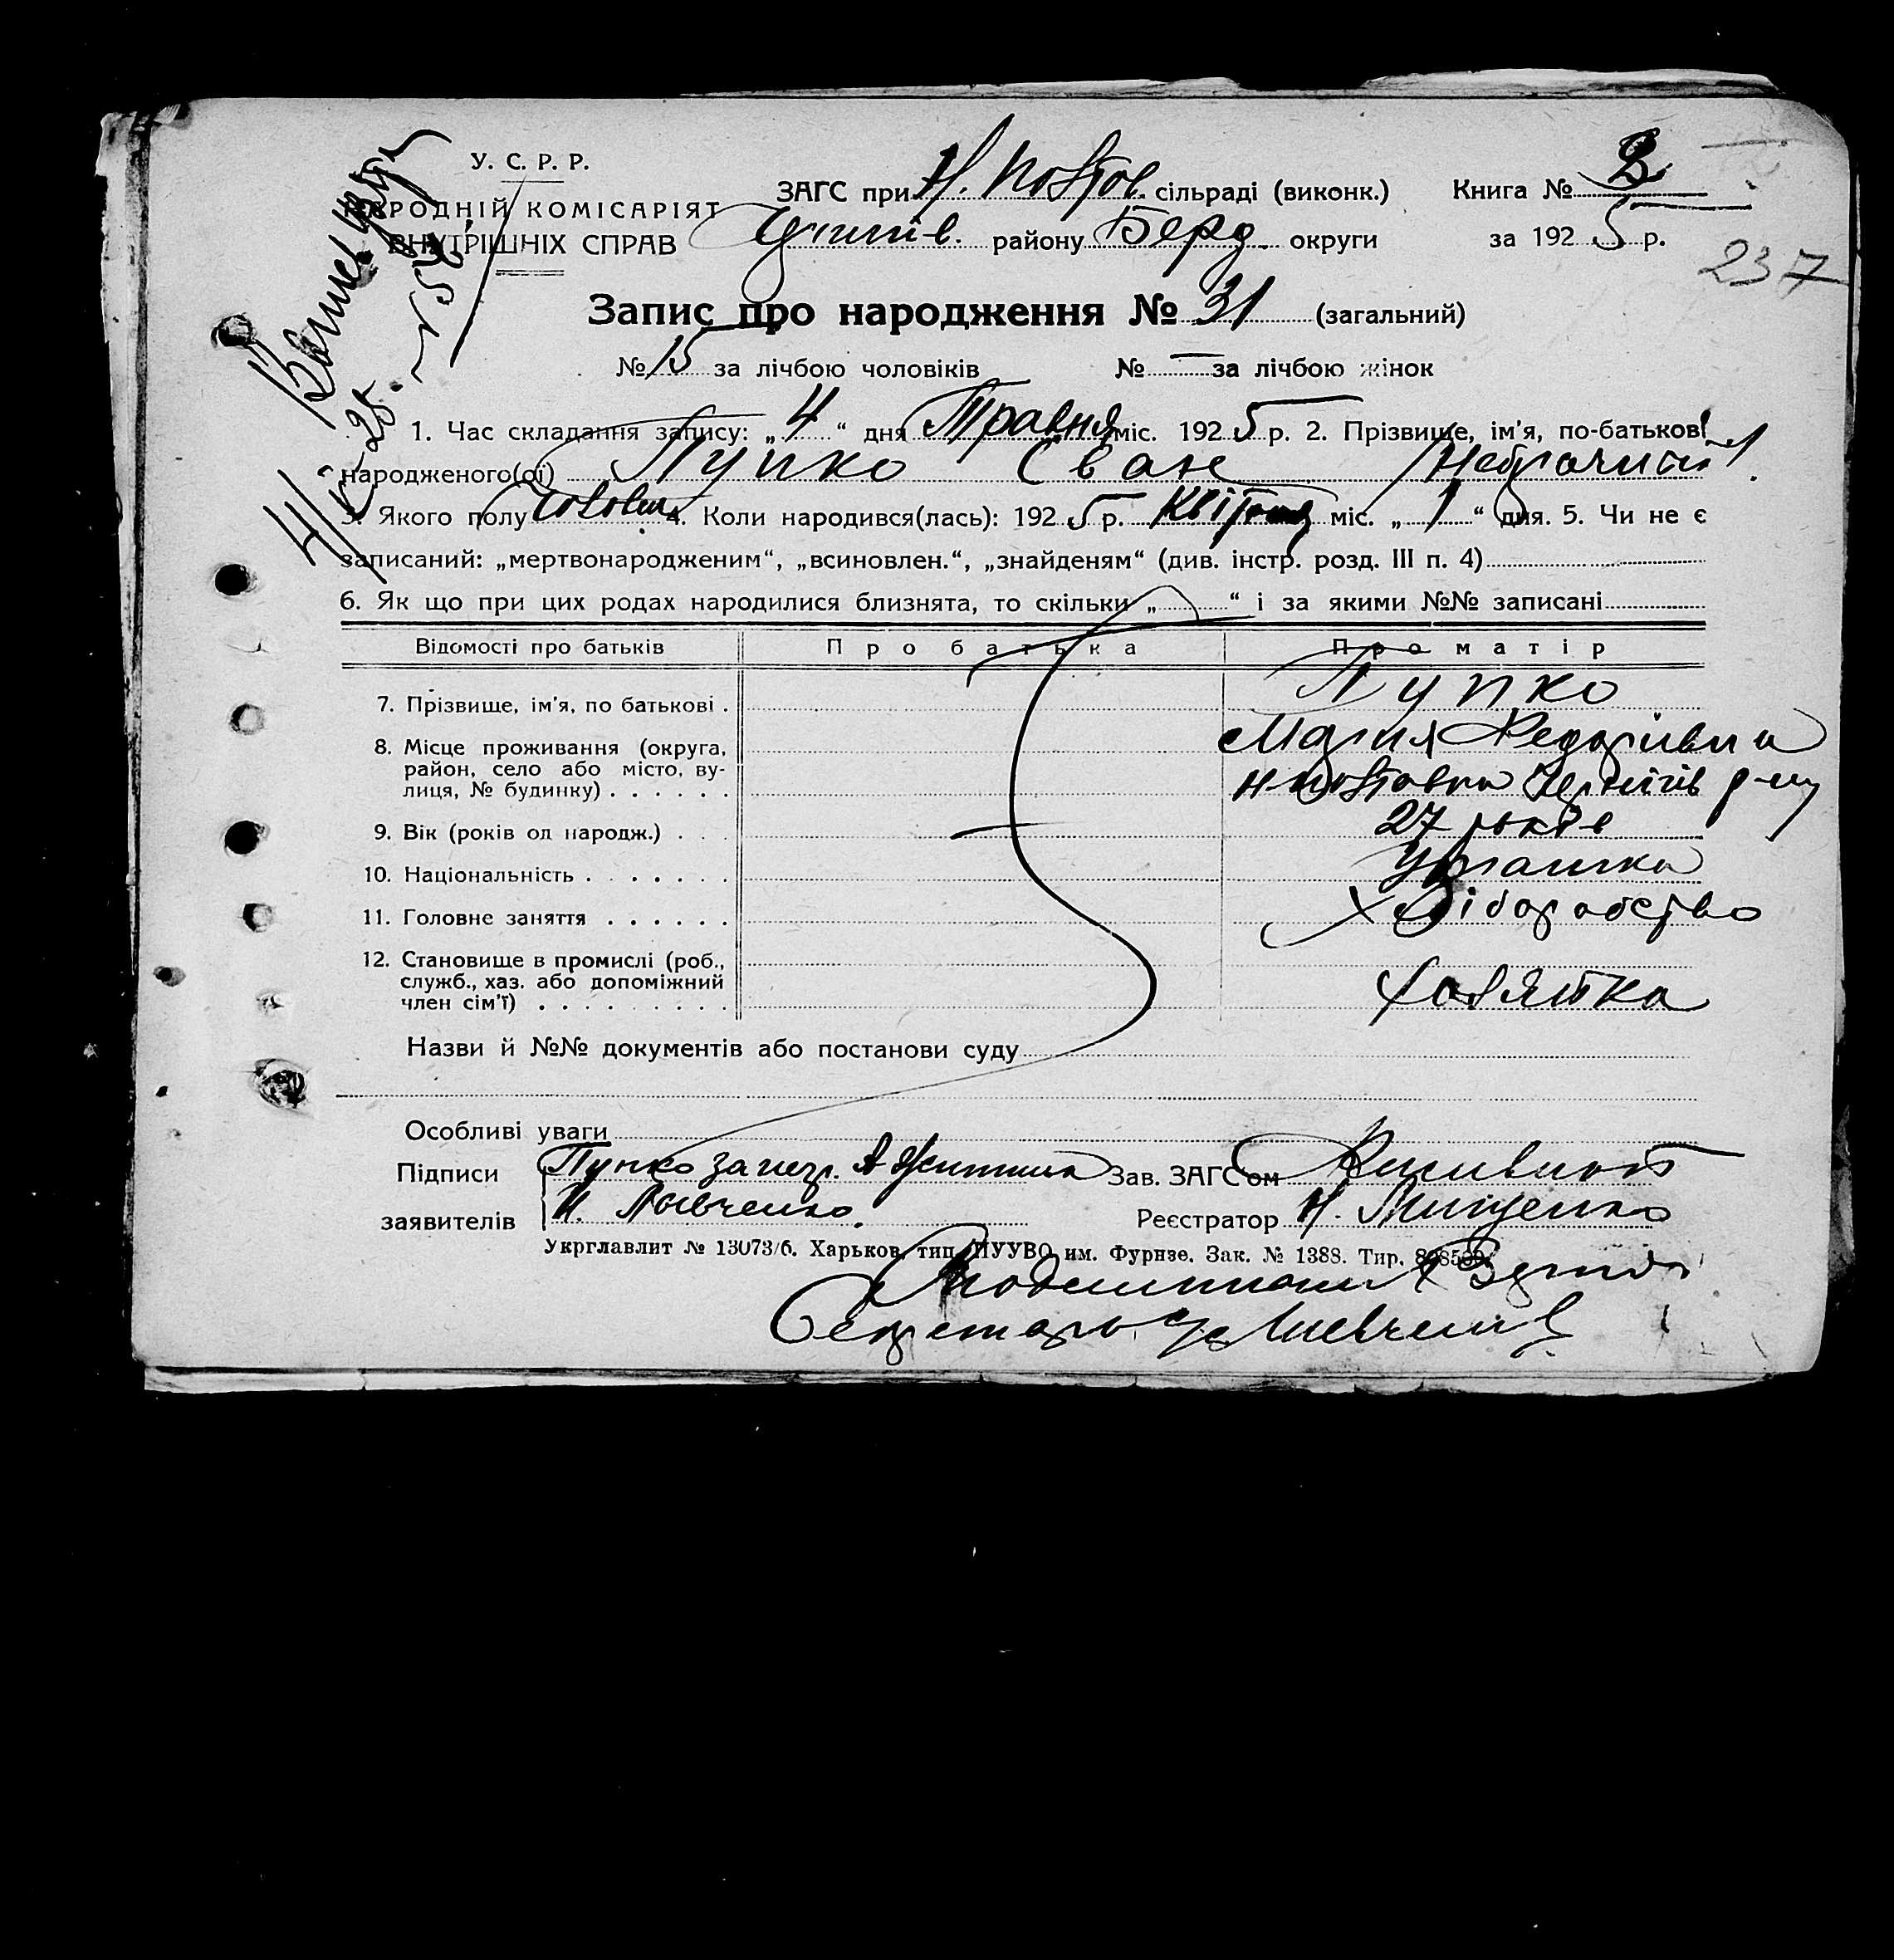 У. С. Р. Р.
НАРОДНІЙ КОМІСАРІЯТ
ВНУТРІШНІХ СПРАВ
ЗАГС при Н. Полтов. сільраді (виконк.)
району Берд. округи
Книга № 2
за 1925 р.
237
Запис про народження № 31 (загальний)
№ 15 за лічбою чоловіків № — за лічбою жінок
1. Час складання запису: „4“ дня Травня міс. 1925 р. 2. Прізвище, ім'я, по-батькові
народженого(ої) Пупко Іван
3. Якого полу Чолов. 4. Коли народився(лась): 1925 р. Квітня міс. „1“ дня. 5. Чи не є
записаний: „мертвонародженим“, „всиновлен.“, „знайденям“ (див. інстр. розд. III п. 4)
6. Як що при цих родах народилися близнята, то скільки „ “ і за якими №№ записані
Відомості про батьків Про батька Про матір
7. Прізвище, ім'я, по батькові . Пупко
Марія Федорівна
8. Місце проживання (округа,
район, село або місто, ву-
лиця, № будинку) . . . . . .
9. Вік (років од народж.) . . . 27 років
10. Національність . . . . . . . Українка
11. Головне заняття . . . . . . Хліборобство
12. Становище в промислі (роб.,
служб., хаз. або допоміжний
член сім'ї) . . . . . . . . . Хазяйка
Назви й №№ документів або постанови суду
Особливі уваги
Підписи Пупко за негр. Зав. ЗАГС'ом
заявителів Реєстратор Н. Мищенко
Укрглавлит № 13073/б. Харьков, тип. ПУУВО им. Фрунзе. Зак. № 1388. Тир.
Секретарь